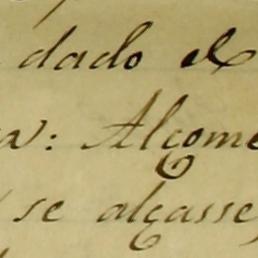 dado el
: Alçome
se alçasse,